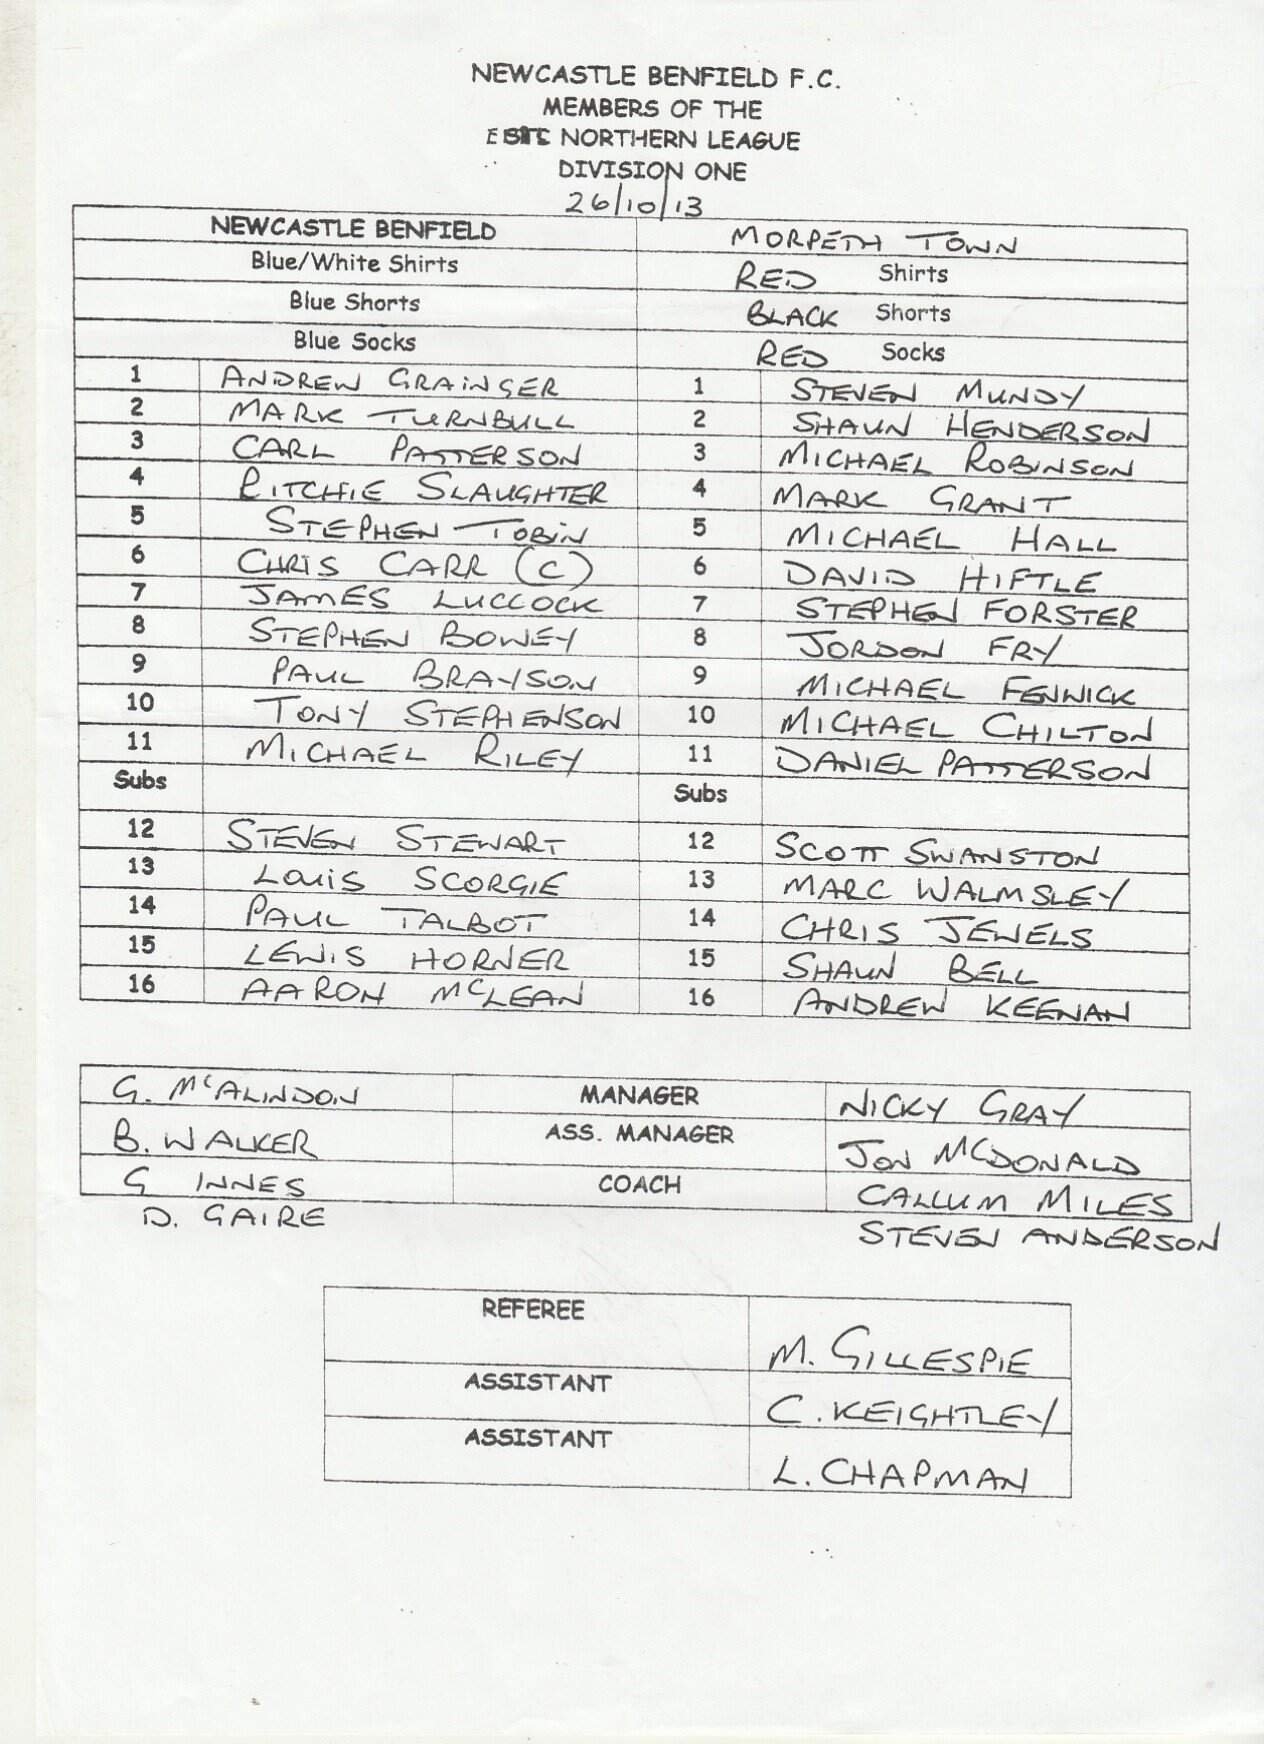 NEWCASTLE BENFIELD F.C.
MEMBERS OF THE
NORTHERN LEAGUE
DIVISION ONE
26/10/13
NEWCASTLE BENFIELD MORPETH TOWN
Blue/White Shirts RED Shirts
Blue Shorts BLACK Shorts
Blue Socks RED Socks
1 ANDREW GRAINGER 1 STEVEN MUNDY
2 MARK TURNBULL 2 SHAUN HENDERSON
3 CARL PATTERSON 3 MICHAEL ROBINSON
4 RITCHIE SLAUGHTER 4 MARK GRANT
5 STEPHEN TOBIN 5 MICHAEL HALL
6 CHRIS CARR (C) 6 DAVID HIFTLE
7 JAMES LUCCOCK 7 STEPHEN FORSTER
8 STEPHEN BOWEY 8 JORDON FRY
9 PAUL BRAYSON 9 MICHAEL FENWICK
10 TONY STEPHENSON 10 MICHAEL CHILTON
11 MICHAEL RILEY 11 DANIEL PATTERSON
Subs Subs
12 STEVEN STEWART 12 SCOTT SWANSTON
13 LOUIS SCORGIE 13 MARC WALMSLEY
14 PAUL TALBOT 14 CHRIS JEWELS
15 LEWIS HORNER 15 SHAUN BELL
16 AARON McLEAN 16 ANDREW KEENAN
G. McALINDON MANAGER NICKY GRAY
B. WALKER ASS. MANAGER JON McDONALD
G INNES COACH CALLUM MILES
D. GAIRE STEVEN ANDERSON
REFEREE M. GILLESPIE
ASSISTANT C. KEIGHTLEY
ASSISTANT L. CHAPMAN